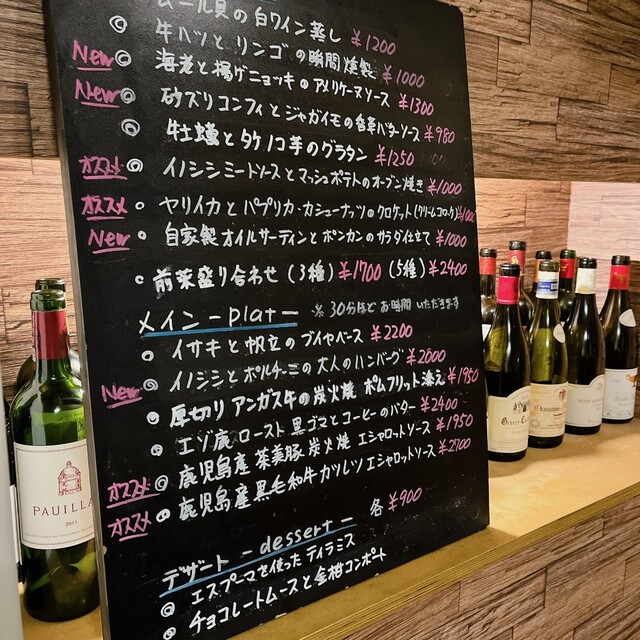 ムール貝の白ワイン蒸し ¥1200
◎ 牛ハツとリンゴの瞬間燻製 ¥1000
New ◎ 海老と揚げニョッキのアメリケーヌソース ¥1300
New ◎ 砂ズリコンフィとジャガイモの香草バターソース ¥980
◎ 牡蠣とタケノコ芋のグラタン ¥1250
オススメ ◎ イノシシミートソースとマッシュポテトのオーブン焼き ¥1000
オススメ ◎ ヤリイカとパプリカ・カシューナッツのクロケット(クリームコロッケ) ¥1000
New ◎ 自家製オイルサーディンとポンカンのサラダ仕立て ¥1000
◎ 前菜盛り合わせ (3種) ¥1700 (5種) ¥2400
メイン -plat- ※30分ほどお時間いただきます
◎ イサキと帆立のブイヤベース ¥2200
New ◎ イノシシとポルチーニの大人のハンバーグ ¥2000
◎ 厚切りアンガス牛の炭火焼 ポムフリット添え ¥1950
◎ エゾ鹿ロースト 黒ゴマとコーヒーのバター ¥2400
オススメ ◎ 鹿児島産茶美豚 炭火焼 エシャロットソース ¥1950
オススメ ◎ 鹿児島産黒毛和牛カツレツ エシャロットソース ¥2700
デザート -dessert- 各¥900
◎ エスプーマを使ったティラミス
◎ チョコレートムースと金柑コンポート
PAUILLA
2011